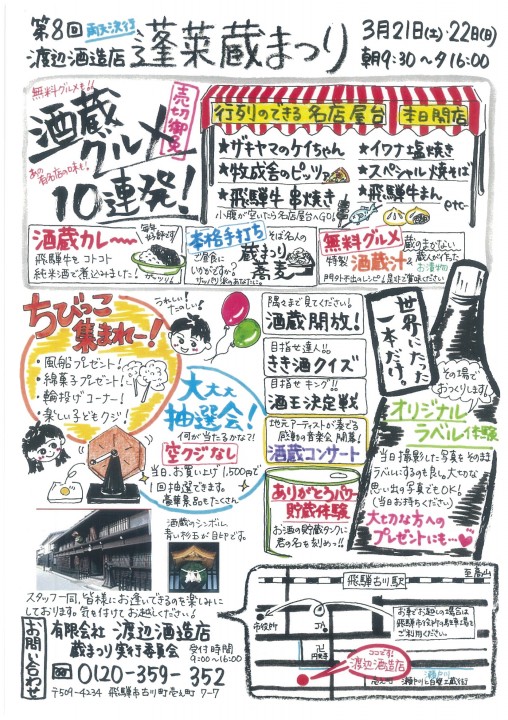 第8回
雨天決行
渡辺酒造店
蓬莱蔵まつり
3月21日(土)・22日(日)
朝9:30〜夕16:00
無料グルメも!!
酒蔵グルメ
売切御免
あの有名店の味も!
10連発!
行列のできる名店屋台
本日開店
★ザキヤマのケイちゃん
★イワナ塩焼き
★牧成舎のピッツァ
★スペシャル焼そば
★飛騨牛串焼き
★飛騨牛まん
etc…
小腹が空いたら名店屋台へGO!
酒蔵カレ〜
毎年好評です
飛騨牛をコトコト
純米酒で煮込みました!
ガッツリ!
本格手打ち
そば名人の
蔵まつり蕎麦
ご昼食に
いかがですか?
サッパリ派のあなたに。
無料グルメ
特製
酒蔵汁
蔵のまかない
&
蔵人が仕込んだ
お漬物
門外不出のレシピ!是非ご賞味ください
ちびっこ
集まれー!
・風船プレゼント!
・綿菓子プレゼント!
・輪投げコーナー!
・楽しい子どもクジ!
うれしい!
たのしい!
大大大
抽選会!
何が当たるかな?!
空クジなし
当日、お買い上げ1,500円で
1回抽選できます。
豪華景品もたくさん
隅々まで見てください!
酒蔵開放!
目指せ達人!!
きき酒クイズ
目指せキング!!
酒王決定戦
地元アーティストが奏でる
感動の音楽会 開幕!
酒蔵コンサート
ありがとうパワー
貯蔵体験
お酒の貯蔵タンクに
君の名を刻めっ!!
世界にたった
一本だけ。
その場で
おつくりします!
オリジナル
ラベル体験
当日撮影した写真をそのまま
ラベルにするのも良し。大切な
思い出の写真でもOK!
(当日お持ちください)
大切な方への
プレゼントにも…
酒蔵のシンボル、
青い杉玉が目印です。
スタッフ一同、皆様にお逢いできるのを楽しみに
しております。気を付けてお越しください!
お問い合わせ
有限会社 渡辺酒造店
蔵まつり実行委員会
受付時間
9:00〜16:00
0120-359-352
〒509-4234 飛騨市古川町壱之町 7-7
飛騨古川駅
至高山
市役所
JA
卍
円光寺
お車でお越しの場合は
飛騨市役所の駐車場を
ご利用ください。
ココです!
渡辺酒造店
瀬戸川
壱之町
瀬戸川と白壁土蔵街